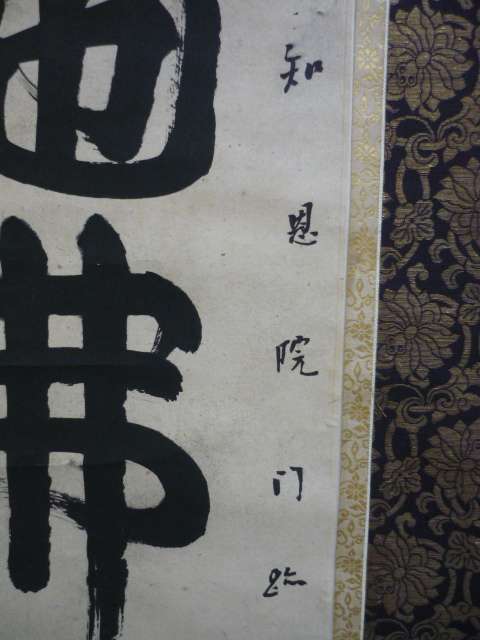 知恩院门跡
佛